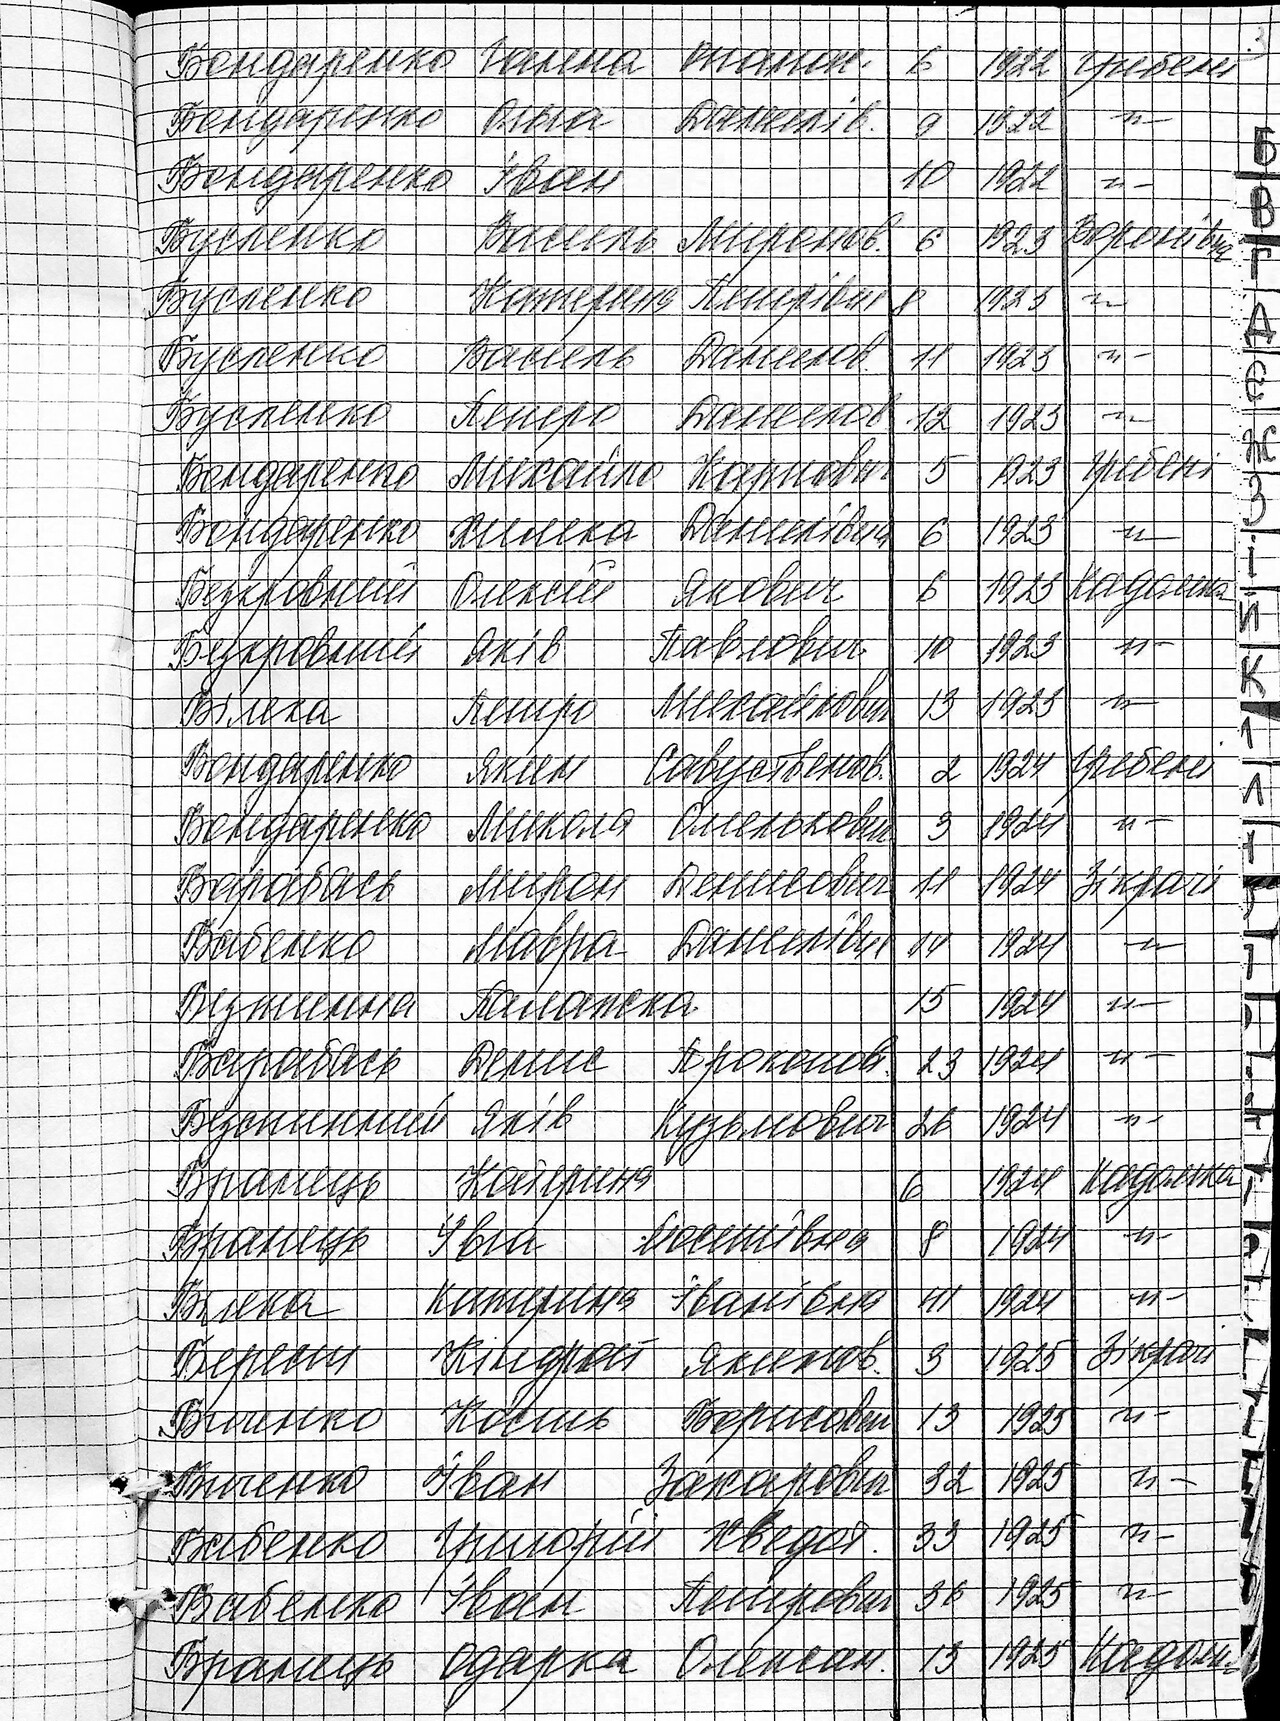 3
Бондаренко Галина 6 1922 Гребені
Бондаренко Ольга Данилів. 9 1922 -"-
Бондаренко Іван 10 1922 -"-
Бусленко Василь Миронов. 6 1923 Воронівка
Бусленко Катерина Петрівна 8 1923 -"-
Бусленко Василь Данилов. 11 1923 -"-
Бусленко Петро Данилов. 12 1923 -"-
Бондаренко Михайло Карпович 5 1923 Гребені
Бондаренко Данилівна 6 1923 -"-
Безкровний Олексій Якович 6 1923 Кадомка
Безкровний Яків Павлович 10 1923 -"-
Білека Петро Михайлович 13 1923 -"-
Бондаренко Яким 2 1924 Гребені
Бондаренко Микола Омелькович 3 1924 -"-
Барабась Мирон Денисович 11 1924 Зікрачі
Бабенко Мавра Данилівна 14 1924 -"-
Безжинна Палажка 15 1924 -"-
Барабась Денис Прокопов. 23 1924 -"-
Яків Кузьмович 26 1924 -"-
Бранець Катерина 6 1924 Кадомка
Бранець Ївга 8 1924 -"-
Білека Катерина Іванівна 11 1924 -"-
Кіндрат Якимов. 3 1925 Зікрачі
Біченко Кость Борисович 13 1925 -"-
Біченко Іван Захарович 32 1925 -"-
Бабенко Григорій Хведот. 33 1925 -"-
Бабенко Іван Петрович 36 1925 -"-
Бранець Одарка Олексан. 13 1925 Кадомк
Б
В
Г
Д
Є
Ж
З
І
Й
К
Л